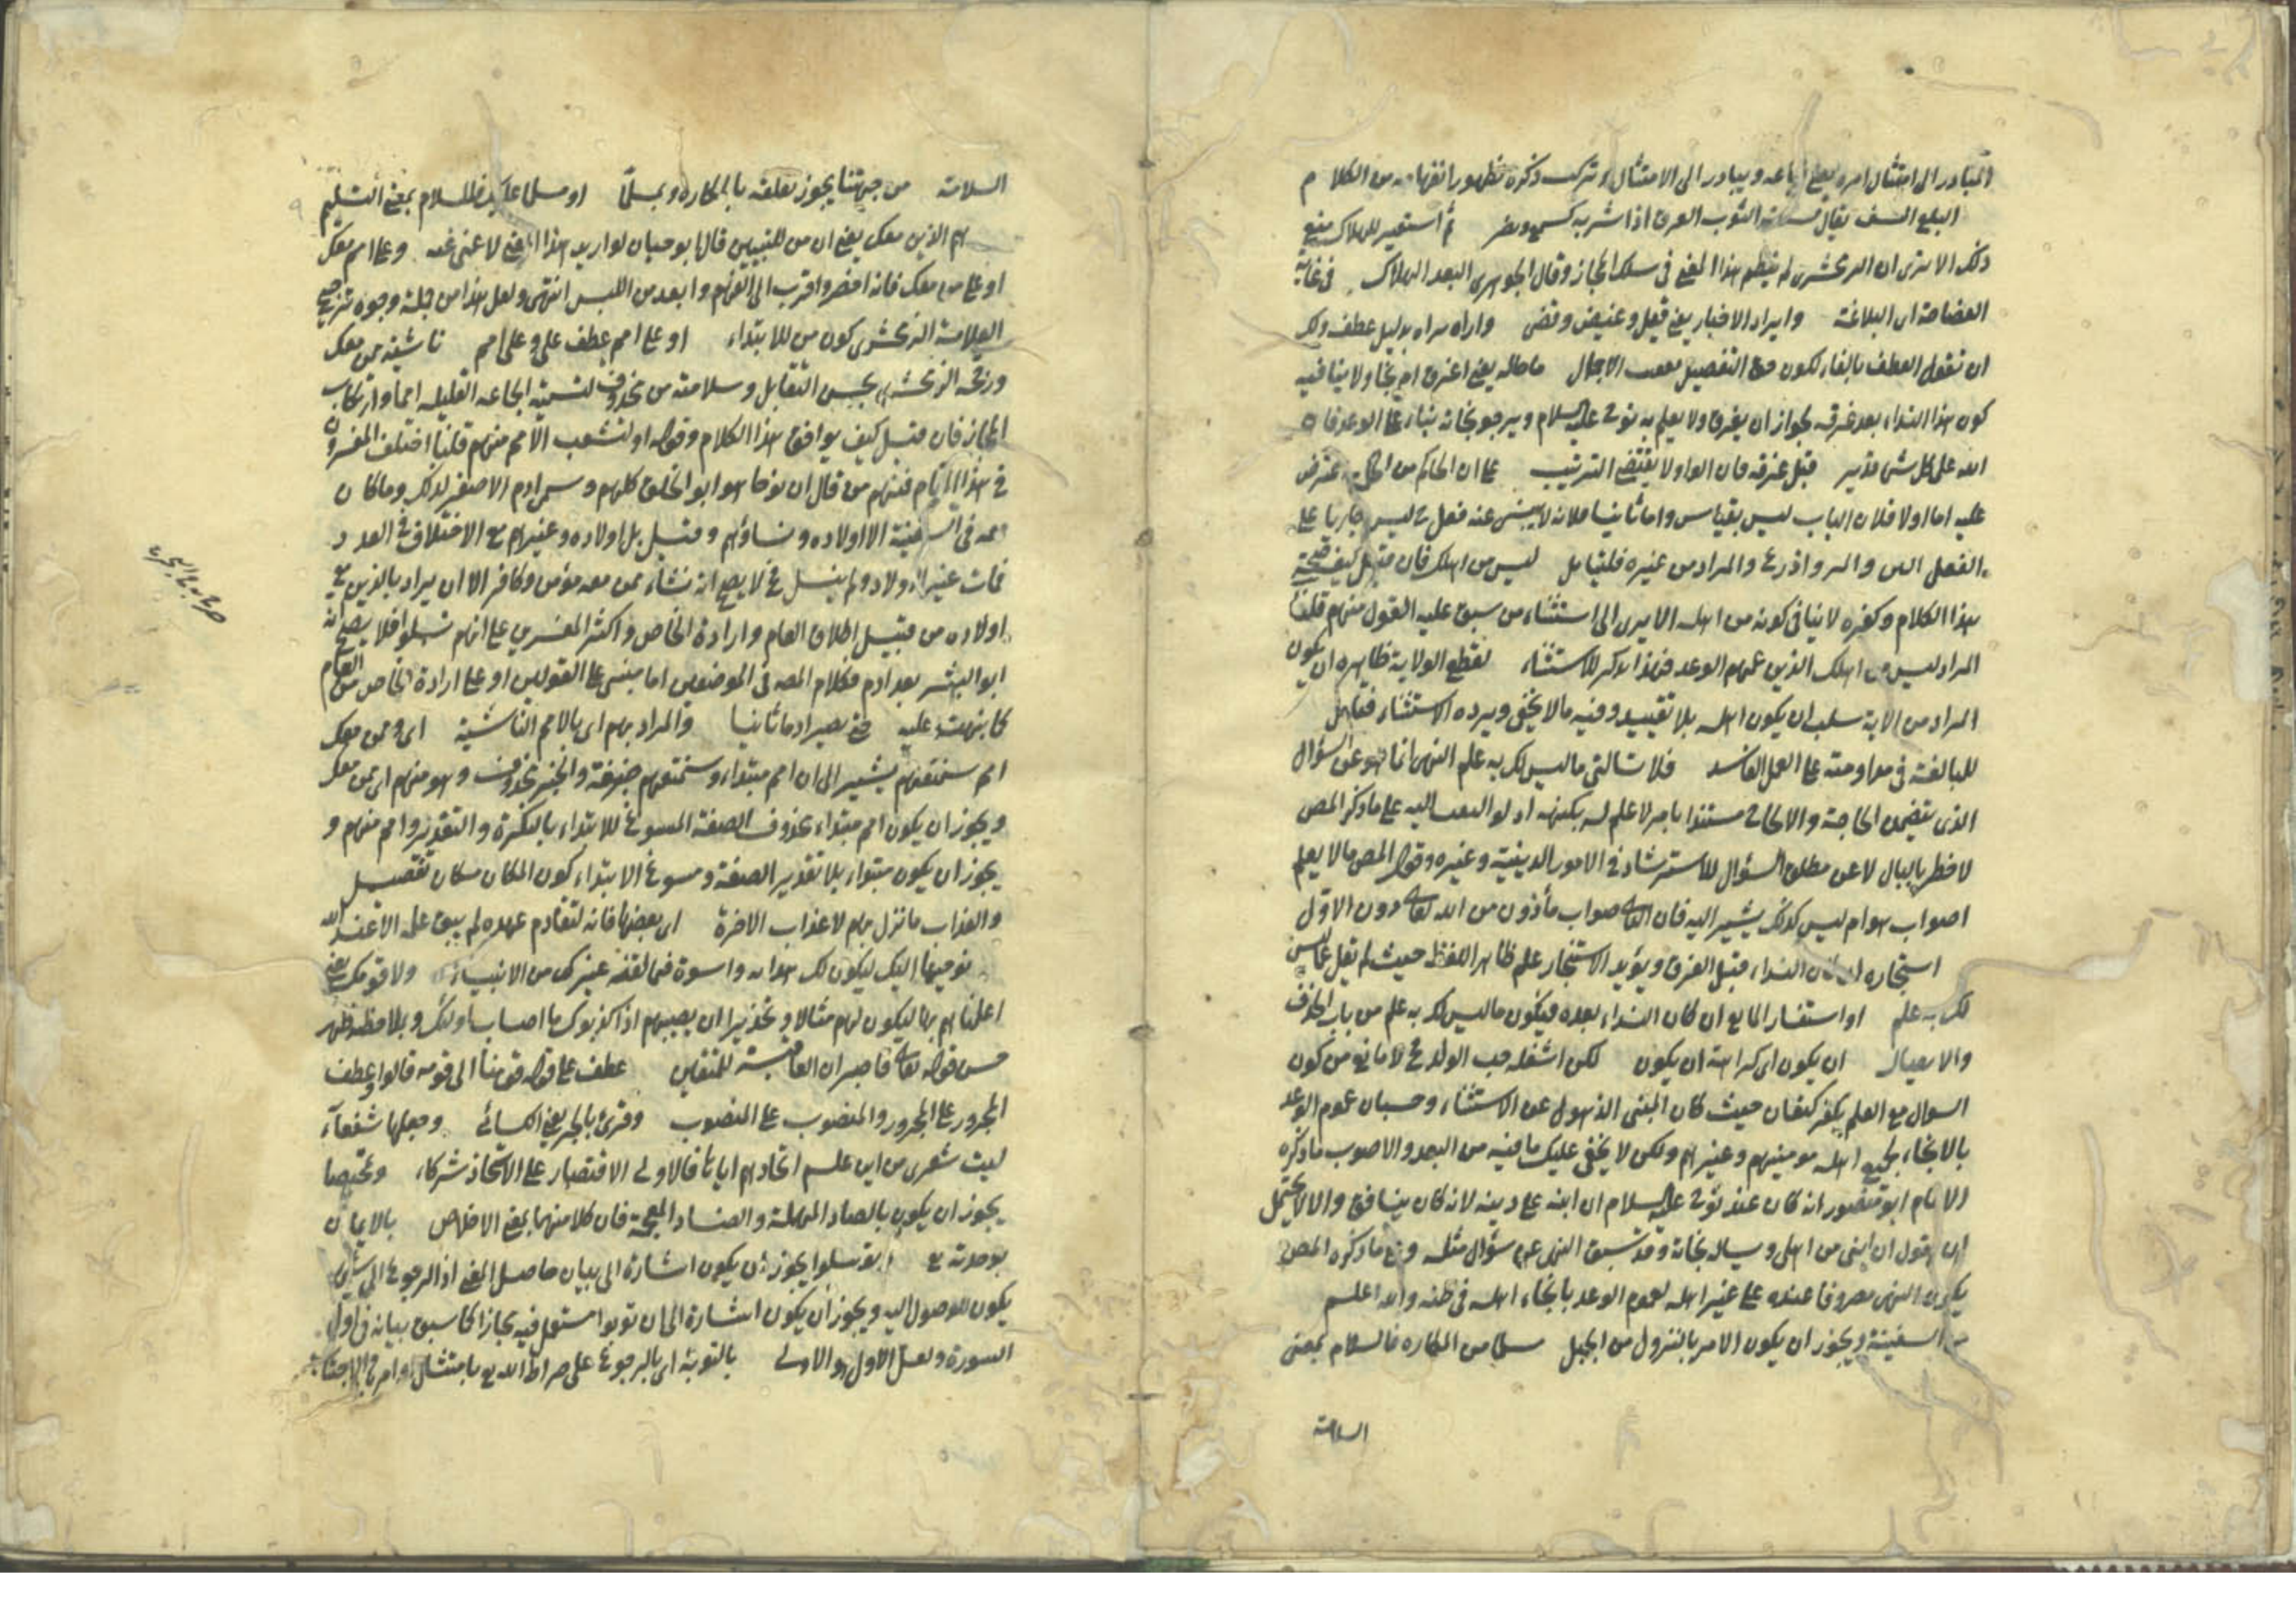 المبادر الى امتثال امره يعني اتباعه ويبادر الى الامتثال وترك ذكره لظهور انفهامه من الكلام
البلع النشف يقال الثوب العرق اذا شربه كسمع ونصر ثم استعير للهلاك يمنع
ذلك الا يرى ان الزمخشري لم ينظم هذا المعنى في سلك المجاز وقال الجوهري البعد الهلاك في غاية
الفصاحة اى البلاغة وايراد الاخبار يعني قيل وغيض وقضى واراد نداءه بدليل عطف ولك
ان تقول العطف بالفاء لكون حق التفصيل بعقب الاجمال ماحاله يعني اغرق ام نجا ولا ينافيه
كون هذا النداء بعد غرقه لجواز ان يغرق ولا يعلم به نوح عليه السلام ويرجو نجاته بناء على الوعد فان
الله على كل شئ قدير قبل غرقه فان الواو لا يقتضي الترتيب على ان الحاكم من الحكمة عترض
عليه اما اولا فلان الباب ليس بقياس واما ثانيا فلانه لا يبنى عنه فعل ليس جاريا على
الفعل والمراد من غيره فليتأمل ليس من اهلك فان قيل كيف صحة
هذا الكلام وكفره لا ينافي كونه من اهله الا يرى الى استثناء من سبق عليه القول منهم قلنا
المراد ليس من اهلك الذين عمهم الوعد فهذا تذكير للاستثناء لقطع الولاية ظاهره ان يكون
المراد من الآية سلب ان يكون اهله بلا تقييد وفيه ما لا يخفى ويرده الاستثناء فتأمل
للمبالغة في مداومته على العمل الفاسد فلا تسألني ما ليس لك به علم النهي انما هو عن السؤال
الذي يتضمن الحاجة والالحاح مستندا بامر لا علم له بكنهه او لو التفت اليه على ما ذكر المص
لا خطر بالبال لا عن مطلق السؤال للاسترشاد في الامور الدينية وغيره وقوله المص ما لا يعلم
اصواب هو ام ليس كذلك يشير اليه فان صواب مأذون من الله تعالى دون الاول
استنجازه ان كان النداء قبل الغرق ويؤيد الاستنجاز علم ظاهر اللفظ حيث لم يقل عما ليس
لك به علم او استفسار المانع ان كان النداء بعده فيكون ما ليس لك به علم من باب الحذف
والايصال ان يكون اى كراهة ان يكون لكن اشغله حب الولد لا مانع من كون
السؤال مع العلم بكفر كنعان حيث كان المبنى الذهول عن الاستثناء وحسبان عموم الوعد
بالانجاء لجميع اهله مومنيهم وغيرهم ولكن لا يخفى عليك ما فيه من البعد والاصوب ما ذكره
الامام ابو منصور انه كان عند نوح عليه السلام ان ابنه على دينه لانه كان ينافق والا لا يحتمل
ان يقول ان ابني من اهلي ويساله نجاته وقد سبق النهي عن سؤال مثله ومع ما ذكره المص
يكون النهي مصروفا عنده على غير اهله لعموم الوعد بانجاء اهله في ظنه والله اعلم
من السفينة ويجوز ان يكون الامر بالنزول من الجبل سالما من المكاره فالسلام بمعنى
السلامة
السلامة من جهتنا يجوز تعلقه بالمكاره وبمسلما او مسلما عليك فالسلام بمعنى التسليم
هم الذين معك يعني ان من للتبيين قال ابو حيان لو اريد هذا المعنى لاغنى عنه وعلى امم معك
او على من معك فانه اخصر واقرب الى الفهم وابعد من اللبس انتهى ولعل هذا من جملة وجوه ترجيح
العلامة الزمخشري كون من للابتداء او على امم عطف على وعلى امم ناشئة ممن معك
ورجحه الزمخشري بحسن التقابل وسلامته من محذوف لتسمية الجماعة القليلة امما وارتكاب
المجاز فان قيل كيف يوافق هذا الكلام وقوله او لتشعب الامم منهم قلنا اختلف المفسرون
في هذا المقام فمنهم من قال ان نوحا هو ابو الخلق كلهم وسمي ادم الاصغر لذلك وما كان
معه في السفينة الا اولاده ونساؤهم وقيل بل اولاده وغيرهم مع الاختلاف في العدد
فمات غير اولاد ولم ينسل لا يصح انه نشاء ممن معه مؤمن وكافر الا ان يراد بالذين مع
اولاده من قبيل اطلاق العام وارادة الخاص واكثر المفسرين على انهم نسلوا فلا يصح انه
ابو البشر بعد ادم فكلام المصه في الموضعين اما مبني على القولين او على ارادة الخاص من العام
كما نبهت عليه بصير ادما ثانيا والمراد بهم اى بالامم الناشئة اى وممن معك
امم سنمتعهم يشير الى ان امم مبتداء وسنمتعهم صفة والخبر محذوف وهو منهم اى ممن معك
ويجوز ان يكون امم مبتداء محذوف الصفة المسوغ للابتداء بالنكرة والتقدير وامم منهم و
يجوز ان يكون مبتداء بلا تقدير الصفة ومسوغ الابتداء كون المكان مكان تفصيل
والعذاب ما نزل بهم لا عذاب الاخرة اى بعضها فانه لتقادم عهده لم يبق علمه الا عند الله
نوحيها اليك ليكون لك هداية واسوة فيما لقيه غيرك من الانبياء ولا قومك يعني
اعلمناهم بها ليكون لهم مثالا وتحذيرا ان يصيبهم اذا كذبوك ما اصاب اولئك وبملاحظته ظهر
حسن قوله تعالى فاصبر ان العاقبة للمتقين عطف على قوله نوحا الى قومه قالوا وعطف
المجرور على المجرور والمنصوب على المنصوب وقرئ بالجر يعني الكسائي وجعلها شفعاء
ليت شعري من اين علم اتخاذهم اياها فالاولى الاقتصار على الاتخاذ شركاء ومخصا
يجوز ان يكون بالصاد المهملة والضاد المعجمة فان كلا منهما بمعنى الاخلاص بالايمان
توسلوا يجوز ان يكون اشارة الى بيان حاصل المعنى اذ الرجوع الى شئ
يكون للوصول اليه ويجوز ان يكون اشارة الى ان توبوا استعمل فيه مجازا كما سبق بيانه في اول
السورة ولعل الاول هو الاولى بالتوبة اى بالرجوع على صراط الله بامتثال اوامره والاجتناب